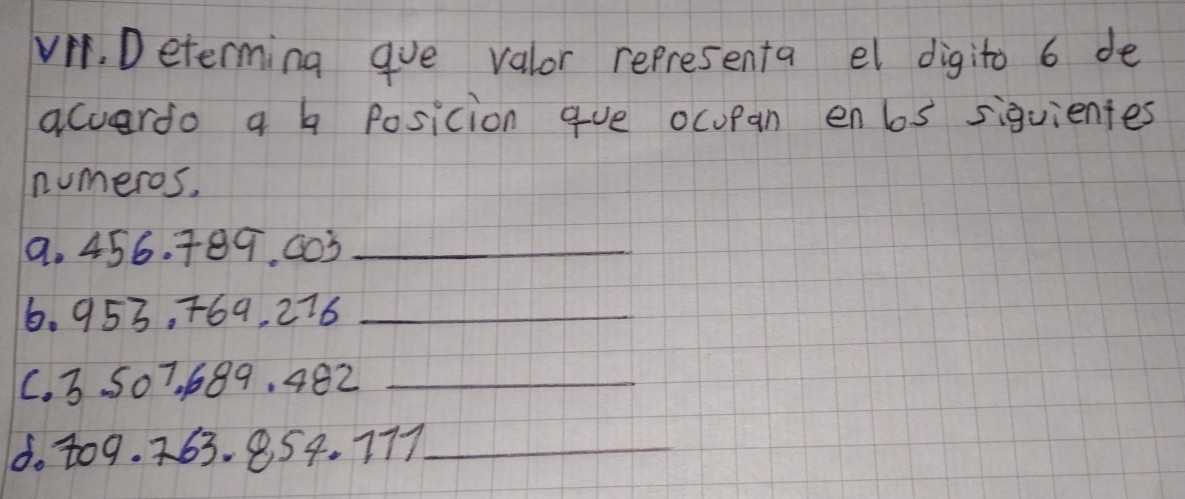 VII. Determina que valor representa el digito 6 de
acuerdo a la Posicion que ocupan en los siguientes
numeros.
a. 456.789.003
b. 953.769.216
c. 3.507.689.482
d. 709.763.854.111